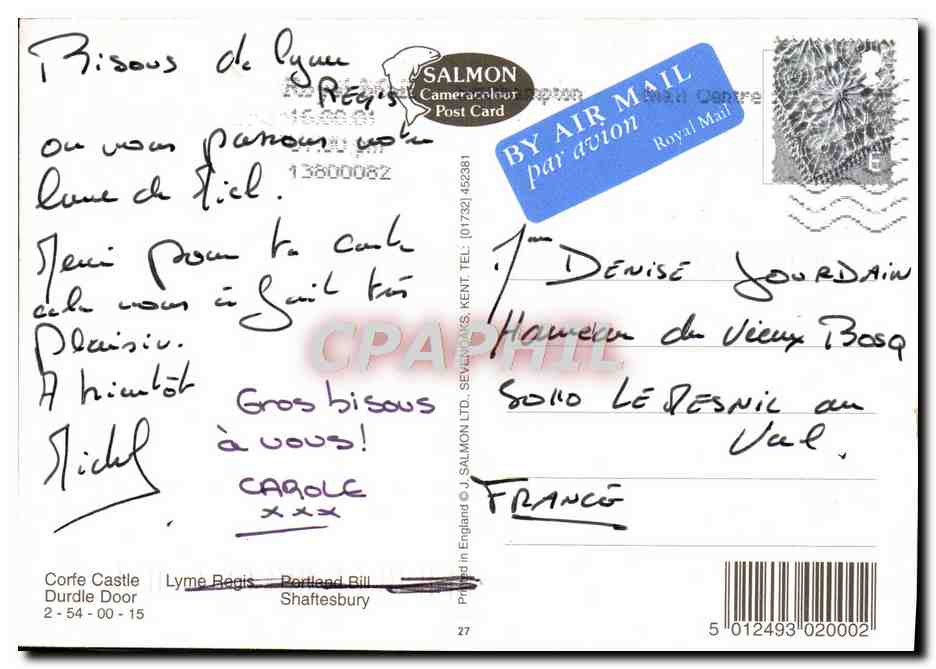 Bisous de Lyme
REGIS
SALMON
Cameracolour
Post Card
ou nous passons notre
lune de Miel.
Merci pour ta carte
cela nous a fait très
plaisir.
A bientôt
Michel
Gros bisous
à vous!
CAROLE
xxx
16.09.01
07.00 pm
13800082
Mail Centre
BY AIR MAIL
par avion
Royal Mail
E
Mme DENISE JOURDAIN
Hameau du Vieux Bosq
50110 LE MESNIL au
Val.
FRANCE
CPAPHIL
Printed in England © J. SALMON LTD., SEVENOAKS, KENT. TEL: [01732] 452381
Corfe Castle Lyme Regis Portland Bill
Durdle Door Shaftesbury
2 - 54 - 00 - 15
27
5 012493 020002